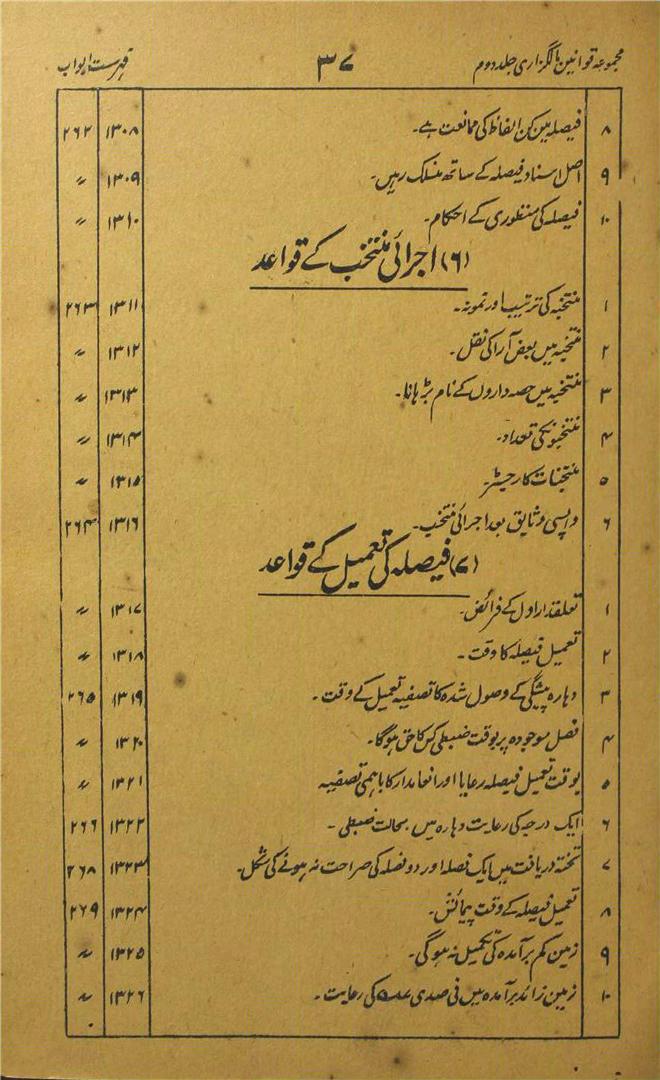 مجموعہ قوانین مالگزاری جلد دوم ۳۷ فہرست ابواب
۸ فیصلہ میں کن الفاظ کی ممانعت ہے۔ ۱۳۰۸ ۲۶۲
۹ اصل اسناد فیصلہ کے ساتھ منسلک رہیں۔ ۱۳۰۹ 〃
۱۰ فیصلہ کی منظوری کے احکام۔ ۱۳۱۰ 〃
(۶) اجرائی منتخب کے قواعد
۱ منتخبہ کی ترتیب اور نمونہ۔ ۱۳۱۱ ۲۶۳
۲ منتخبہ میں بعض آرا کی نقل۔ ۱۳۱۲ 〃
۳ منتخبہ میں حصہ داروں کے نام بڑہانا۔ ۱۳۱۳ 〃
۴ منتخبونکی تعداد۔ ۱۳۱۴ 〃
۵ منتخبات کا رجسٹر۔ ۱۳۱۵ 〃
۶ واپسی وثایق بعد اجرائی منتخب۔ ۱۳۱۶ ۲۶۴
(۷) فیصلہ کی تعمیل کے قواعد
۱ تعلقدار اول کے فرائض۔ ۱۳۱۷ 〃
۲ تعمیل فیصلہ کا وقت۔ ۱۳۱۸ 〃
۳ دہارہ پیشگی کے وصول شدہ کا تصفیہ تعمیل کے وقت۔ ۱۳۱۹ ۲۶۵
۴ فصل موجودہ پر بوقت ضبطی کس کا حق ہوگا۔ ۱۳۲۰ 〃
۵ بوقت تعمیل فیصلہ رعایا اور انعامدار کا باہمی تصفیہ ۱۳۲۱ 〃
۶ ایک درجہ کی رعایت دہارہ میں بحالت ضبطی۔ ۱۳۲۲ ۲۶۶
۷ تختہ دریافت میں ایک فصلہ اور دو فصلہ کی صراحت نہ ہونے کی شکل۔ ۱۳۲۳ ۲۶۸
۸ تعمیل فیصلہ کے وقت پیمائش۔ ۱۳۲۴ ۲۶۹
۹ زمین کم برآمدہ کی تکمیل نہ ہوگی۔ ۱۳۲۵ 〃
۱۰ زمین زائد برآمدہ میں فی صدی کی رعایت۔ ۱۳۲۶ 〃